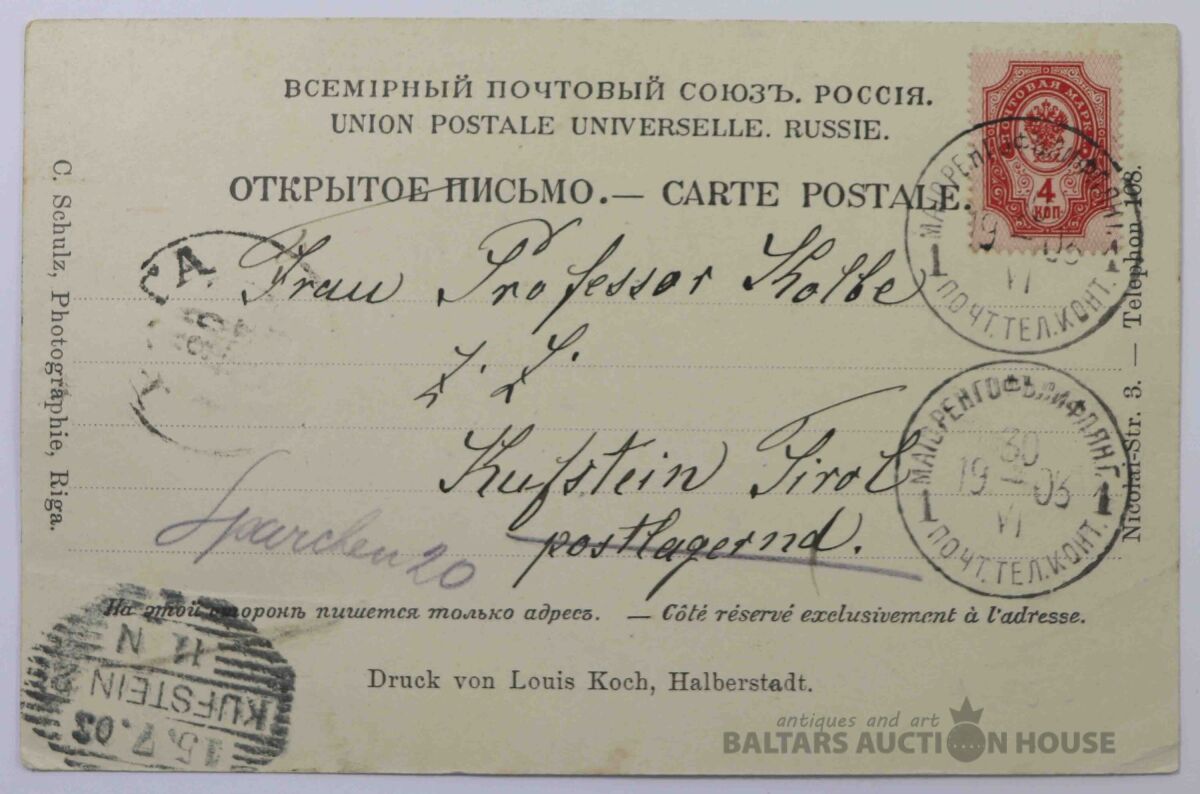 ВСЕМІРНЫЙ ПОЧТОВЫЙ СОЮЗЪ. РОССІЯ.
UNION POSTALE UNIVERSELLE. RUSSIE.
ОТКРЫТОЕ ПИСЬМО.— CARTE POSTALE.
ПОЧТОВАЯ МАРКА
4
КОП
C. Schulz, Photographie, Riga.
Nicolai-Str. 3. — Telephon 108.
МАІОРЕНГОФЪ ЛИФЛЯН.Г.
19 03
VI
1 1
ПОЧТ.ТЕЛ.КОНТ.
РИГА
Frau Professor Kolbe
Kufstein Tirol
postlagernd.
Sparchen 20
МАІОРЕНГОФЪ ЛИФЛЯН.Г.
30
19 03
VI
1 1
ПОЧТ.ТЕЛ.КОНТ.
На этой сторонѣ пишется только адресъ. — Côté réservé exclusivement à l'adresse.
Druck von Louis Koch, Halberstadt.
KUFSTEIN
15.7.03
11 N
antiques and art
BALTARS AUCTION HOUSE